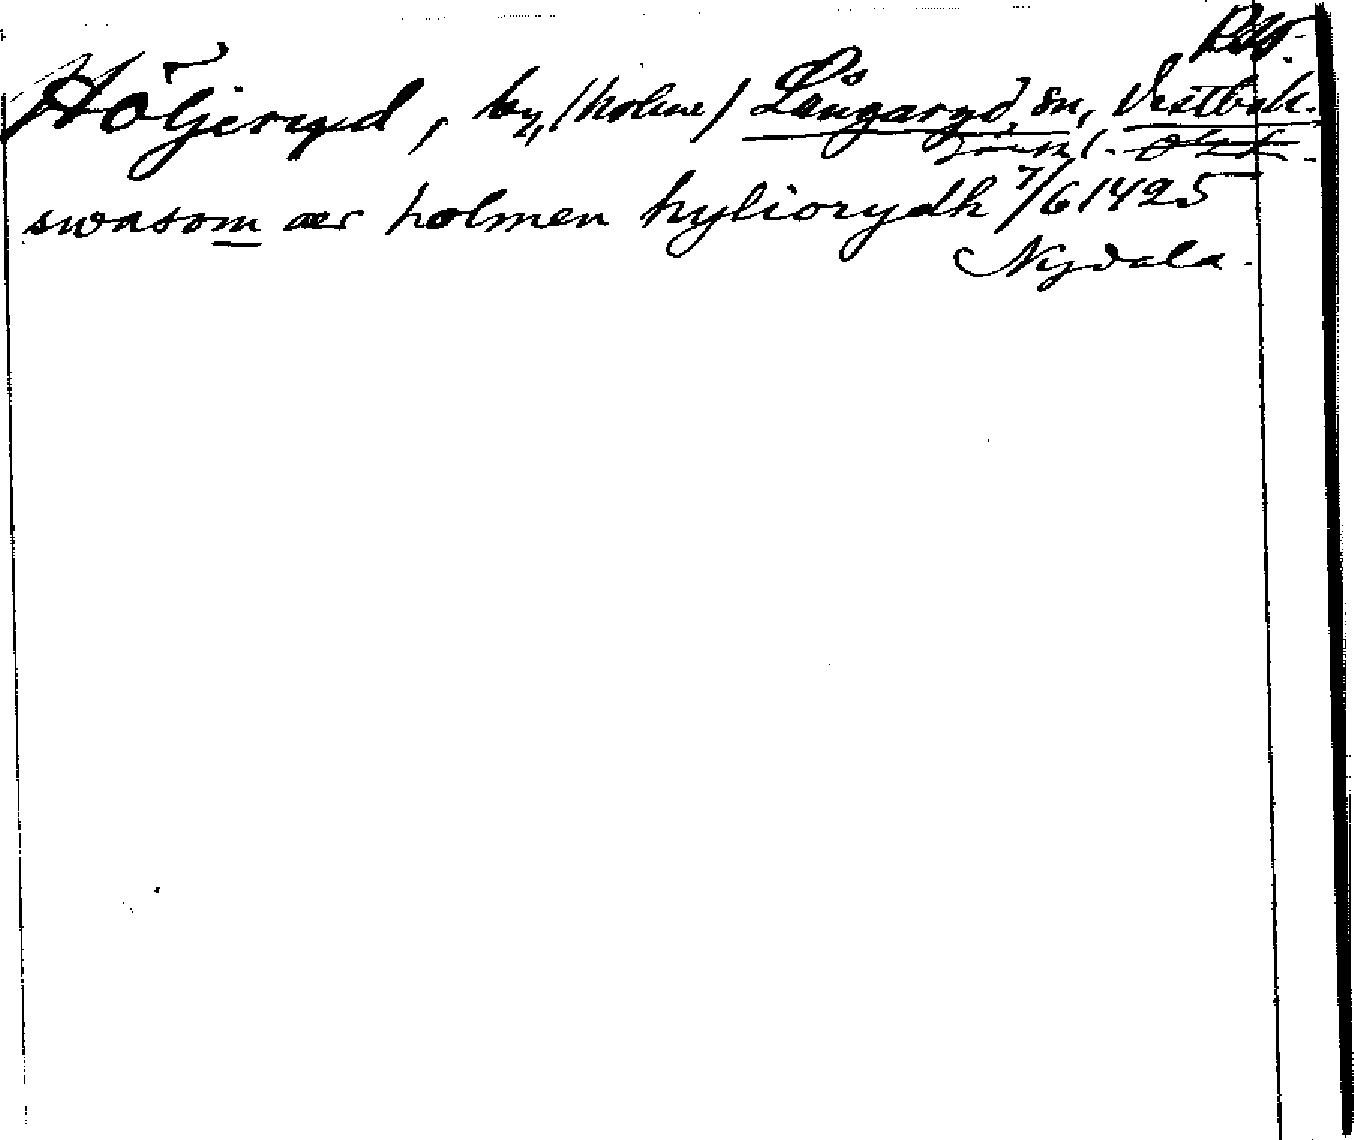 Höljeryd, by, (holme) Långaryd, sn, Västbo h.
swa som ær holmen hyliorydh 7/6 1425
Nydala